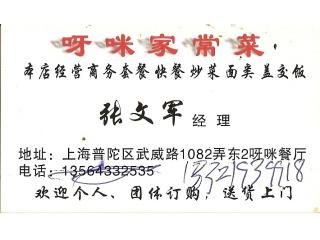 呀咪家常菜
本店经营商务套餐快餐炒菜面类盖交饭
张文军 经理
地址：上海普陀区武威路1082弄东2呀咪餐厅
电话：13564332535 13321939918
欢迎个人、团体订购，送货上门